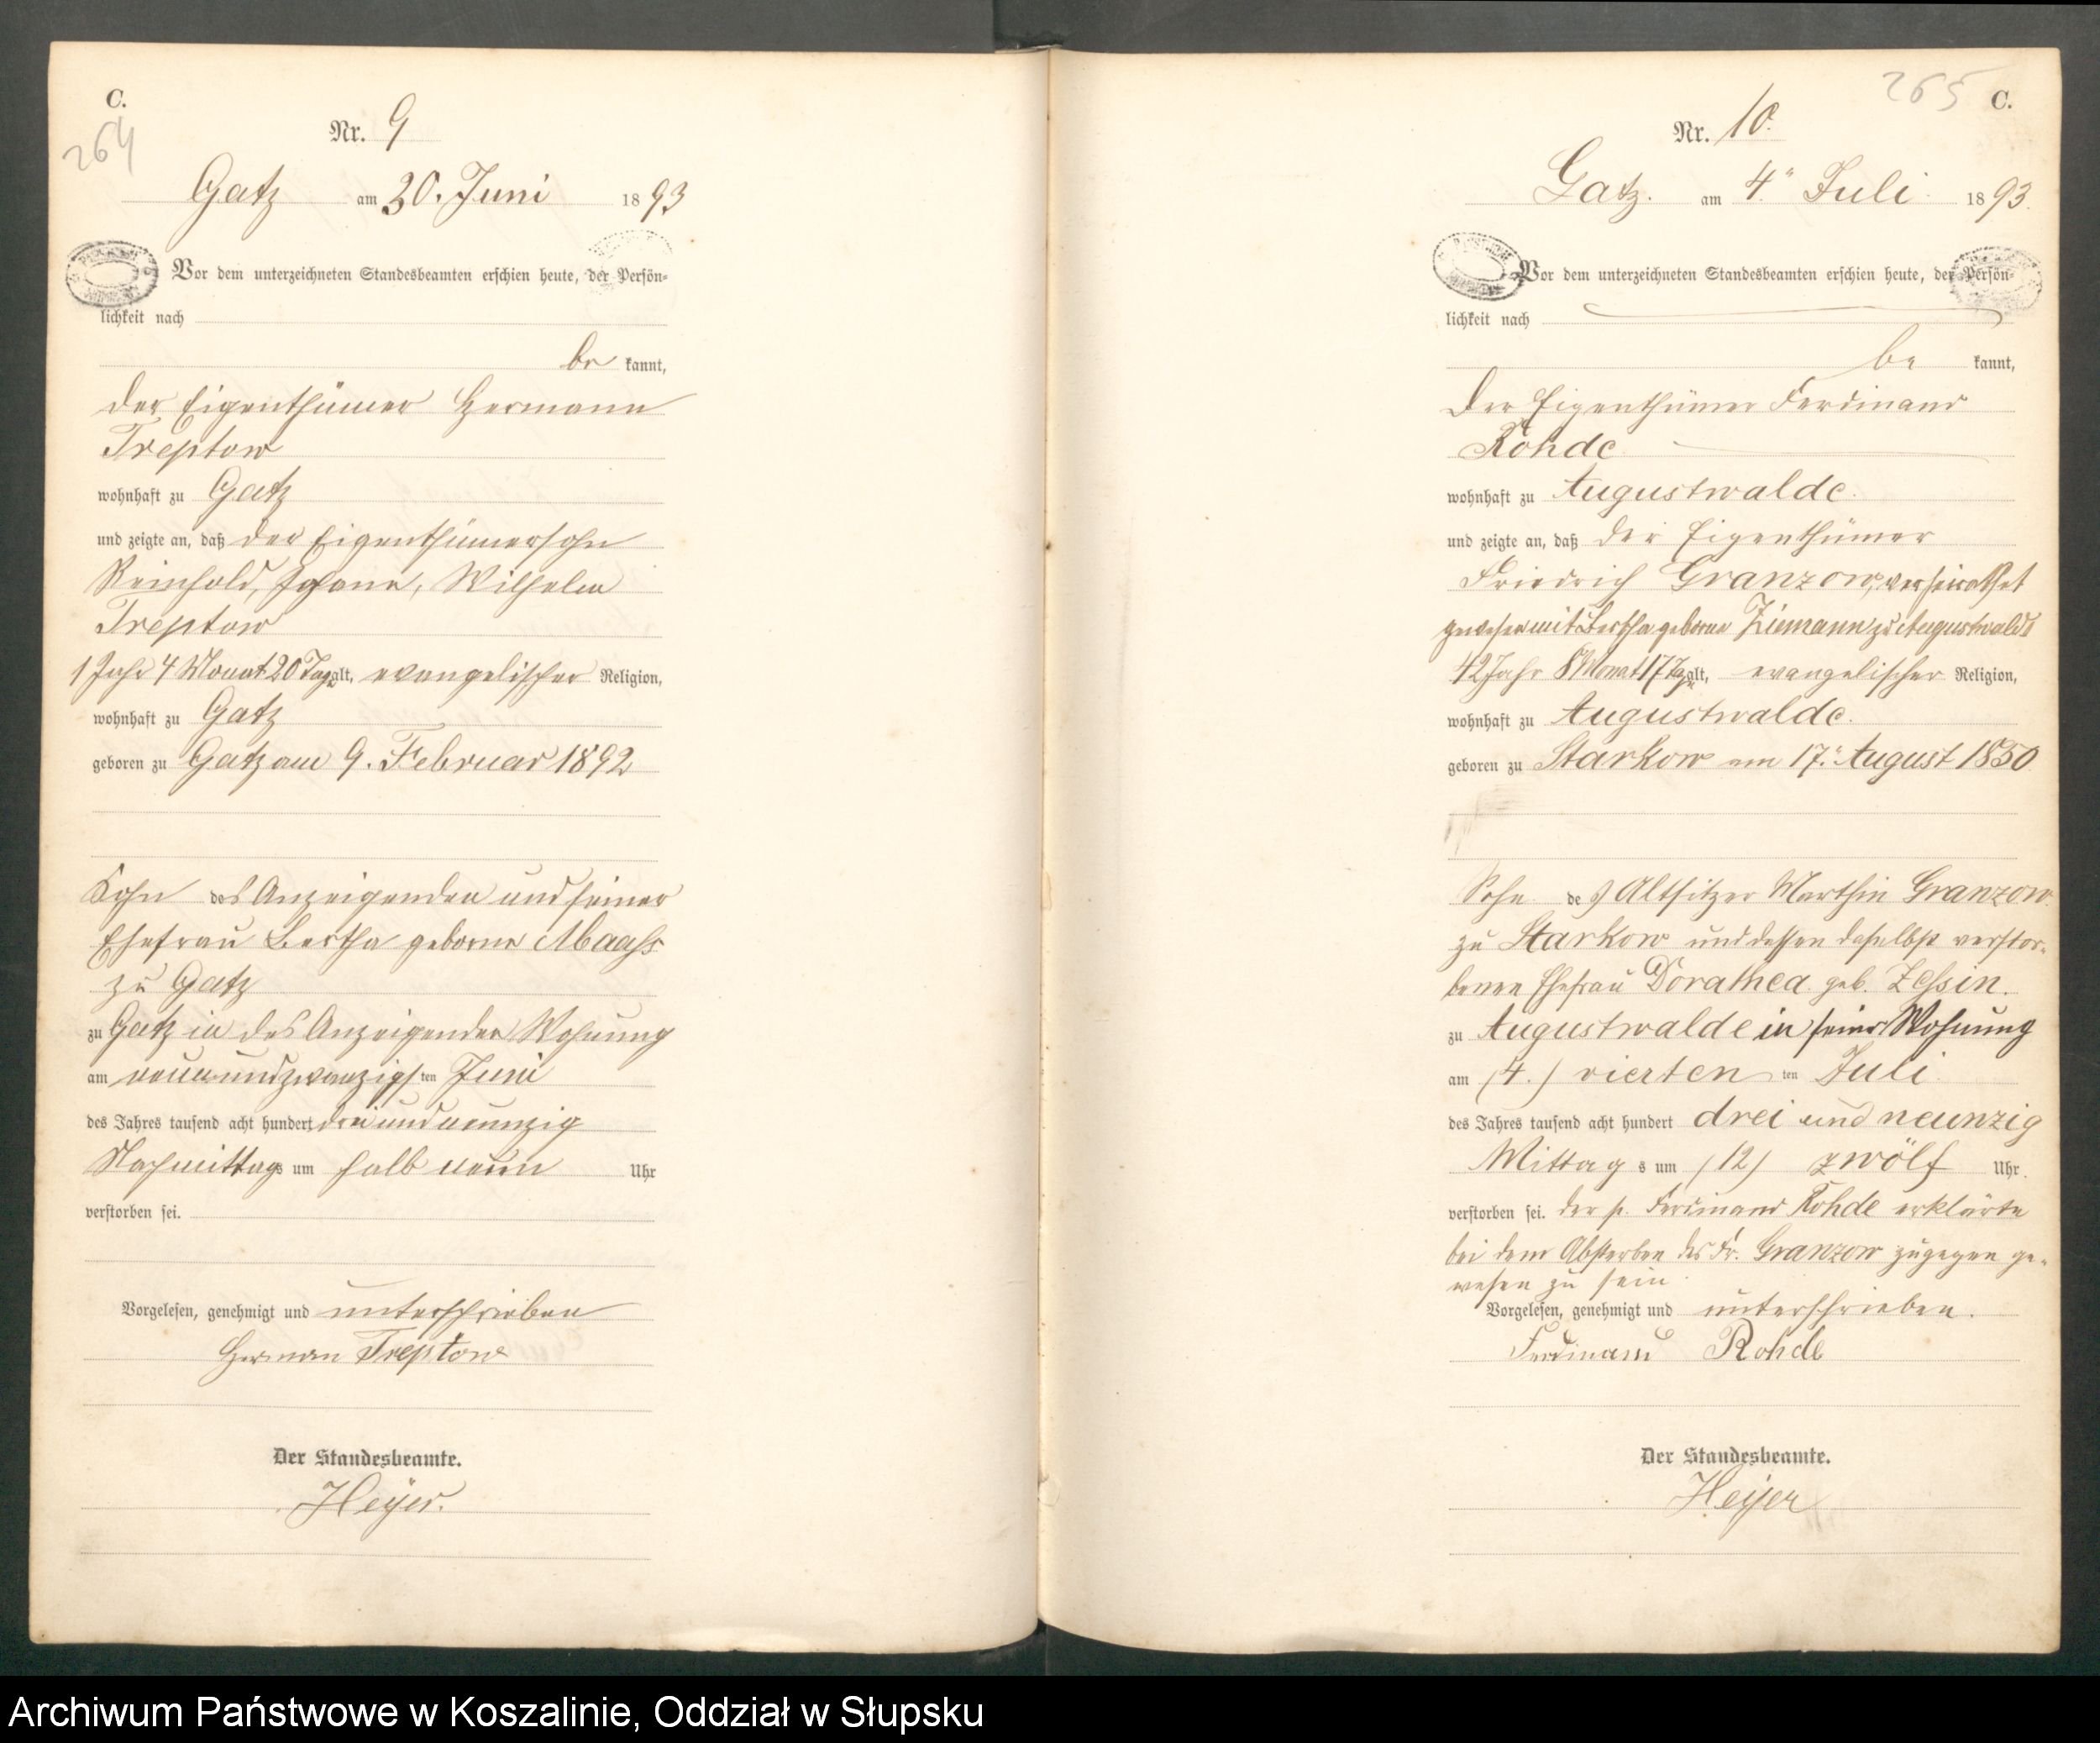 C.
264
Nr. 9
Gatz am 30. Juni 1893
Vor dem unterzeichneten Standesbeamten erschien heute, der Persön=
lichkeit nach
be kannt,
der Eigenthümer Hermann
Treptow
wohnhaft zu Gatz
und zeigte an, daß der Eigenthümersohn
Reinhold, Johann, Wilhelm
Treptow
1 Jahr 4 Monat 20 Tage alt, evangelischer Religion,
wohnhaft zu Gatz
geboren zu Gatz am 9. Februar 1892
Sohn des Anzeigenden und seiner
Ehefrau Bertha geborne Maass
zu Gatz
zu Gatz in des Anzeigenden Wohnung
am neunundzwanzigsten Juni
des Jahres tausend acht hundert dreiundneunzig
Nachmittags um halb neun Uhr
verstorben sei.
Vorgelesen, genehmigt und unterschrieben
Herman Treptow
Der Standesbeamte.
Heyer.
265 C.
Nr. 10.
Gatz. am 4. Juli 1893.
Vor dem unterzeichneten Standesbeamten erschien heute, der Persön=
lichkeit nach
be kannt,
Der Eigenthümer Ferdinand
Rohde
wohnhaft zu Augustwalde.
und zeigte an, daß der Eigenthümer
Friedrich Granzow, verheirathet
gewesen mit Bertha geborne Ziemann zu Augustwalde
42 Jahr 8 Monat 17 Tage alt, evangelischer Religion,
wohnhaft zu Augustwalde.
geboren zu Starkow am 17. August 1850
Sohn des Altsitzer Marthin Granzow
zu Starkow und dessen daselbst verstor-
benen Ehefrau Dorathea geb. Zessin.
zu Augustwalde in seiner Wohnung
am (4.) vierten ten Juli
des Jahres tausend acht hundert drei und neunzig
Mittag s um (12) zwölf Uhr.
verstorben sei. der p. Ferdinand Rohde erklärte
bei dem Absterben des Fr. Granzow zugegen ge-
wesen zu sein.
Vorgelesen, genehmigt und unterschrieben.
Ferdinand Rohde
Der Standesbeamte.
Heyer
Archiwum Państwowe w Koszalinie, Oddział w Słupsku